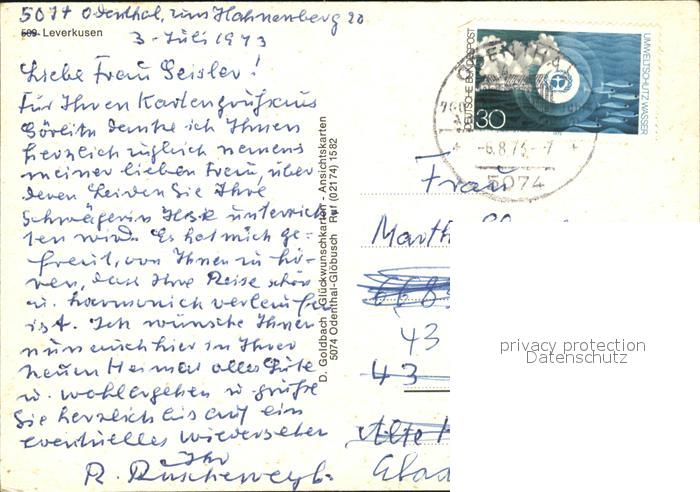 5074 Odenthal, zum Hahnenberg 20
509 Leverkusen
3-Juli 1973
Liebe Frau Geisler!
Für Ihren Kartengruß aus
Görlitz danke ich Ihnen
herzlich zugleich namens
meiner lieben Frau, über
deren Leiden Sie Ihre
Schwägerin unterrich
ten wird. Es hat mich ge-
freut, von Ihnen zu hö-
ren, dass Ihre Reise schön
u. harmonisch verlaufen
ist. Ich wünsche Ihnen
nun auch hier in Ihrer
neuen Heimat alles Gute
u. Wohlergehen u. grüße
Sie herzlich bis auf ein
eventuelles Wiedersehen
Ihr
R.
D. Goldbach · Glückwunschkarten - Ansichtskarten
5074 Odenthal-Glöbusch · Ruf (02174) 1582
DEUTSCHE BUNDESPOST
30
UMWELTSCHUTZ: WASSER
ODENTHAL
-6.8.73.-7
5074
Frau
Marth
43
43
Alte
Glad
privacy protection
Datenschutz